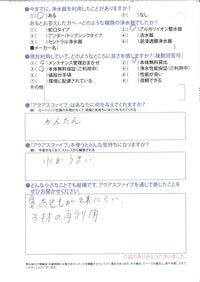 ●今までに、浄水器を利用したことがありますか？
(✓)ある ( )ない
●あるとお答えした方へ→どのような種類の浄水器でしたか？
( )蛇口タイプ (✓)アルカリイオン整水器
( )アンダーシンクタイプ ( )活水器
( )セントラル浄水器 ( )逆浸透膜浄水器
●メーカー名( )
●現在利用していて、どのようなところに良さを感じますか？(複数回答可)
( )メンテナンス管理おまかせ (✓)本体無料貸出
( )本体無料保証(ご利用中) ( )浄水性能保証(ご利用中)
( )値段が手頃 ( )性能が良い
( )環境に配慮されている ( )信頼できる
その他
●「アクアスファイブ」はあなたに何を与えてくれますか？
かんたん
●「アクアスファイブ」を使うとどんな気持ちになりますか？
水がうまい
●どんな小さなことでも結構です。アクアスファイブを通して感じたことを
ぜひお聞かせください。
出来にくい。
ろ材の再利用。
ご協力ありがとうございました。